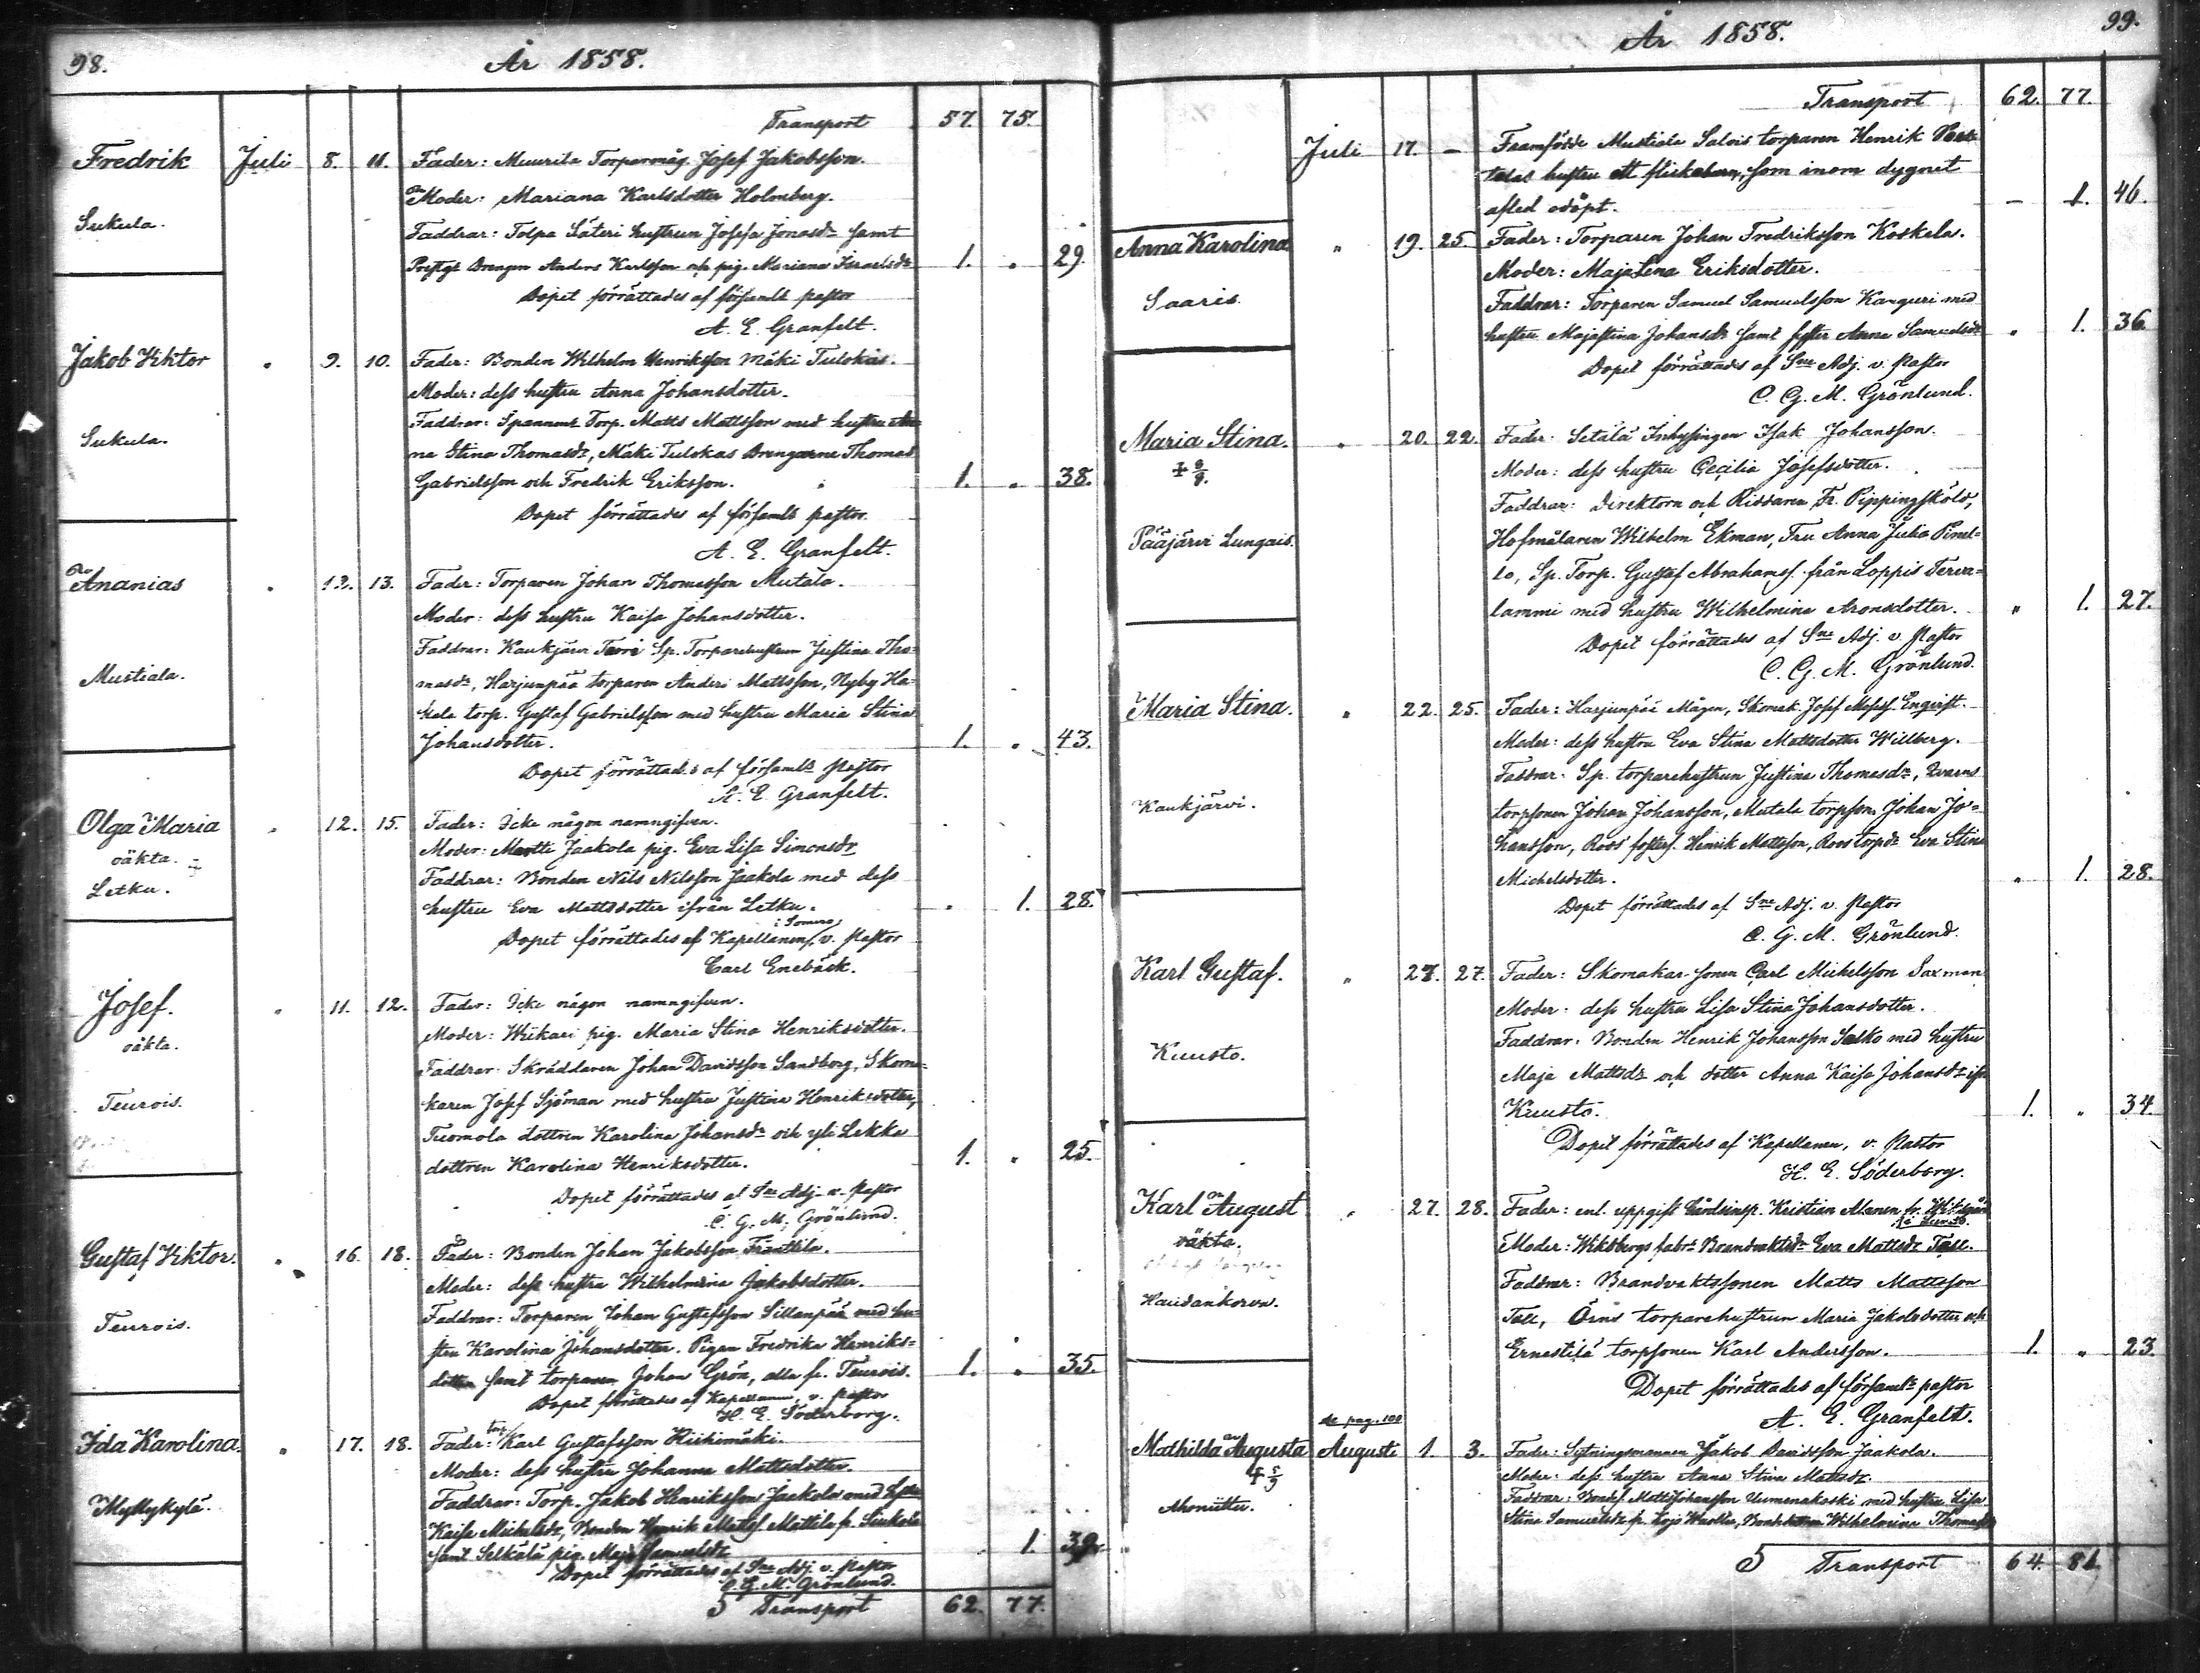 98.
År 1858.
Transport 57. 75.
Fredrik Juli 8. 11. Fader: Muurila Torparmåg Josef Jakobsson.
Moder: Mariana Karlsdotter Holmberg.
Sukula.
Faddrar: Tolpa Säteri hustrun Josefa Jonasdr samt
Prestgs Drengen Anders Karlsson och pig. Mariana Israelsdr 1. „ 29.
Dopet förrättades af församls pastor
A. E. Granfelt.
Jakob Viktor „ 9. 10. Fader: Bonden Wilhelm Henriksson Mäki Tulokas.
Moder: dess hustru Anna Johansdotter.
Sukula.
Faddrar: Torp. Matts Mattsson med hustru An-
na Stina Thomasdr, Mäki Tulokas Drengarne Thomas
Gabrielsson och Fredrik Eriksson. 1. „ 38.
Dopet förrättades af församls pastor
A. E. Granfelt.
Ananias „ 12. 13. Fader: Torparen Johan Thomasson Mutala.
Moder: dess hustru Kaisa Johansdotter.
Mustiala.
Faddrar: Kaukjärvi Torri Sp. Torparehustrun Justina Tho-
masdr, Harjunpää torparen Anders Mattsson, Nyby Ha-
kala torp. Gustaf Gabrielsson med hustru Maria Stina
Johansdotter. 1. „ 43.
Dopet förrättades af församls Pastor
A. E. Granfelt.
Olga Maria „ 12. 15. Fader: Icke någon namngifven.
oäkta.
Letku.
Moder: Martti Jaakola pig. Eva Lisa Simonsdr
Faddrar: Bonden Nils Nilsson Jaakola med dess
hustru Eva Mattsdotter ifrån Letku. „ 1. 28.
Dopet förrättades af Kapellanen i Somero, v. Pastor
Carl Enebäck.
Josef. „ 11. 12. Fader: Icke någon namngifven.
oäkta.
Moder: Wiikari pig. Maria Stina Henriksdotter.
Teurois.
Faddrar: Skräddaren Johan Davidsson Sandborg, Skoma-
karen Josef Sjöman med hustru Justina Henriksdotter,
Tuomola dottren Karolina Johansdr och yli Lekka
dottren Karolina Henriksdotter. 1. „ 25.
Dopet förrättades af Sne Adj. v. Pastor
C. G. M. Grönlund.
Gustaf Viktor. „ 16. 18. Fader: Bonden Johan Jakobsson Franttila.
Moder: dess hustru Wilhelmina Jakobsdotter.
Teurois.
Faddrar: Torparen Johan Gustafsson Sillanpää med hu-
stru Karolina Johansdotter. Pigan Fredrika Henriks-
dotter samt torparen Johan Grön, alla fr. Teurois. 1. „ 35.
Dopet förrättades af Kapellanen, v. Pastor
H. E. Söderborg.
Ida Karolina. „ 17. 18. Fader: torp. Karl Gustafsson Hiihimäki.
Moder: dess hustru Johanna Mattsdotter.
Myllykylä.
Faddrar: Torp. Jakob Henriksson Jaakola med hustru
Kaisa Michelsdr, Bonden Henrik Mattss. Mattila fr. Sukula
samt Selkälä pig. Maja Samuelsdr 1. 39.
Dopet förrättades af Sne Adj. v. Pastor
C. G. M. Grönlund.
5 Transport 62. 77.
99.
År 1858.
Transport 62. 77.
Juli 17. – Framfödde Mustiala Salois torparen Henrik
hustru ett flickebarn, som inom dygnet
afled odöpt. – 1. 46.
Anna Karolina „ 19. 25. Fader: Torparen Johan Fredriksson Koskela.
Moder: Maja Lena Eriksdotter.
Saaris.
Faddrar: Torparen Samuel Samuelsson Kanguri med
hustru Majastina Johansdr samt syster Anna Samuelsdr „ 1. 36.
Dopet förrättades af Sne Adj. v. Pastor
C. G. M. Grönlund.
Maria Stina. „ 20. 22. Fader: Setälä Inhysingen Isak Johansson.
+ 8/9.
Moder: dess hustru Cecilia Josefsdotter.
Pääjärvi Lungais.
Faddrar: Direktorn och Riddaren Fr. Pippingsköld,
Hofmålaren Wilhelm Ekman, Fru Anna Julia Pinel-
lo, Sp. Torp. Gustaf Abrahamss. från Loppis Terva-
lammi med hustru Wilhelmina Aronsdotter. „ 1. 27.
Dopet förrättades af Sne Adj. v. Pastor
C. G. M. Grönlund.
Maria Stina. „ 22. 25. Fader: Harjunpää Mågen, Skomak. Josef Engqvist.
Moder: dess hustru Eva Stina Mattsdotter Willberg.
Kaukjärvi.
Faddrar: Sp. torparehustrun Justina Thomasdr, Qvarns
torpsonen Johan Johansson, Mutala torpson. Johan Jo-
hansson, Roos fosters. Henrik Mattsson, Roos torpdr Eva Stina
Michelsdotter. „ 1. 28.
Dopet förrättades af Sne Adj. v. Pastor
C. G. M. Grönlund.
Karl Gustaf. „ 27. 27. Fader: Skomakar sonen Carl Michelsson Saxman
Moder: dess hustru Lisa Stina Johansdotter.
Kuusto.
Faddrar: Bonden Henrik Johansson Salko med hustru
Maja Mattsdr och dotter Anna Kaisa Johansdr ifr.
Kuusto. 1. „ 34
Dopet förrättades af Kapellanen, v. Pastor
H. E. Söderborg.
Karl August „ 27. 28. Fader: enl. uppgift Gårdsinsp. Kristian Alanen fr.
oäkta.
Moder: Wiksbergs fabr. Brandvaktsdr Eva Mattsdr Tall.
Haudankorva.
Faddrar: Brandvaktssonen Matts Mattsson
Tall, Örns torparehustrun Maria Jakobsdotter och
Ernestilä torpsonen Karl Andersson. 1. „ 23.
Dopet förrättades af församls pastor
A. E. Granfelt.
se pag. 100
Mathilda Augusta Augusti 1. 3. Fader: Sytningsmannen Jakob Davidsson Jaakola.
+ 5/9
Moder: dess hustru Anna Stina Mattsdr.
Faddrar: Bondes. Matts Johansson med hustru Lisa
Stina Samuelsdr fr. Wilhelmina Thomasdr
5 Transport 64. 81.